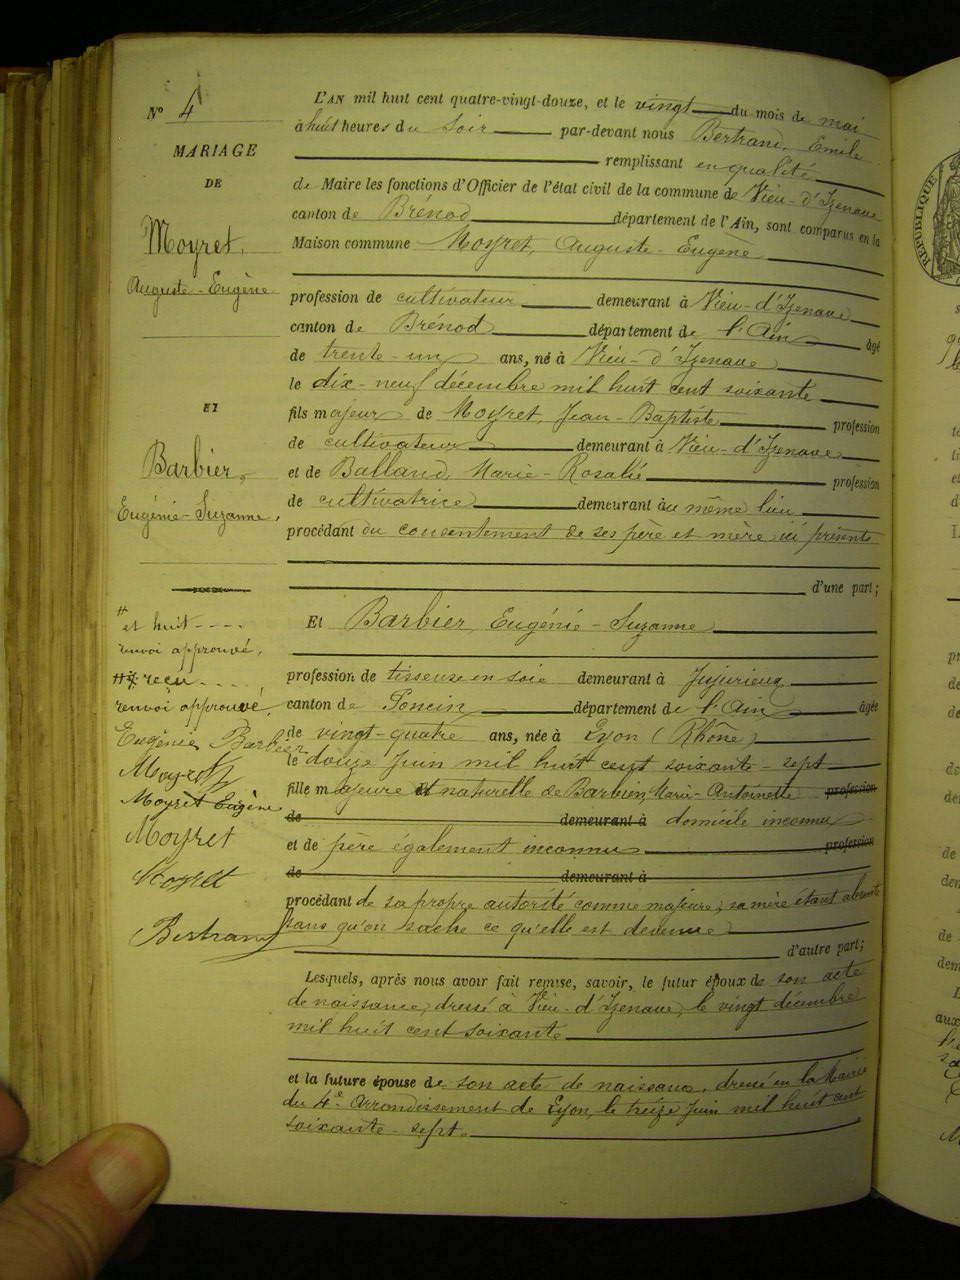 N° 4
MARIAGE
DE
Moyret,
Auguste-Eugène
ET
Barbier,
Eugénie-Suzanne,
# et huit - - - -
renvoi approuvé.
## reçu - - - -
renvoi approuvé
Eugénie Barbier
Moyret
Moyret Eugène
Moyret
Moyret
Bertrand
L'AN mil huit cent quatre-vingt-douze, et le vingt du mois de mai
à huit heures du soir par-devant nous Bertrand, Emile
remplissant en qualité
de Maire les fonctions d'Officier de l'état civil de la commune de Vieu-d'Izenave
canton de Brénod département de l'Ain, sont comparus en la
Maison commune Moyret, Auguste-Eugène
profession de cultivateur demeurant à Vieu-d'Izenave
canton de Brénod département de l'Ain âgé
de trente-un ans, né à Vieu-d'Izenave
le dix-neuf décembre mil huit cent soixante
fils majeur de Moyret, Jean-Baptiste profession
de cultivateur demeurant à Vieu-d'Izenave
et de Balland, Marie-Rosalie profession
de cultivatrice demeurant au même lieu
procédant du consentement de ses père et mère ici présents
d'une part;
Et Barbier Eugénie-Suzanne
profession de tisseuse en soie demeurant à Jujurieux
canton de Poncin département de l'Ain âgée
de vingt-quatre ans, née à Lyon (Rhône)
le douze juin mil huit cent soixante-sept
fille majeure et naturelle de Barbier, Marie-Antoinette profession
de demeurant à domicile inconnu
et de père également inconnu profession
de demeurant à
procédant de sa propre autorité comme majeure, sa mère étant absente
sans qu'on sache ce qu'elle est devenue
d'autre part;
Lesquels, après nous avoir fait remise, savoir, le futur époux de son acte
de naissance, dressé à Vieu-d'Izenave, le vingt décembre
mil huit cent soixante
et la future épouse de son acte de naissance, dressé en la Mairie
du 4e arrondissement de Lyon, le treize juin mil huit cent
soixante-sept.
RÉPUBLIQUE